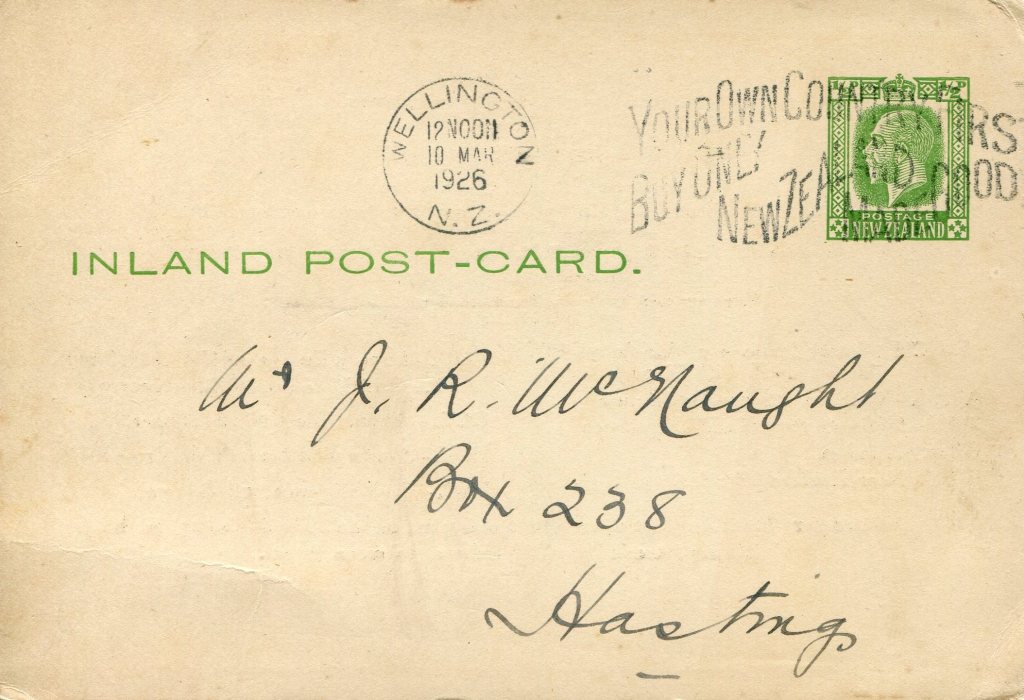 WELLINGTON
12 NOON
10 MAR
1926
N.Z.
YOUR OWN
BUY ONLY
NEW ZEALAND GOODS
½ ½ᴰ
POSTAGE
NEW ZEALAND
INLAND POST-CARD.
Mr J. R. McNaught
Box 238
Hastings